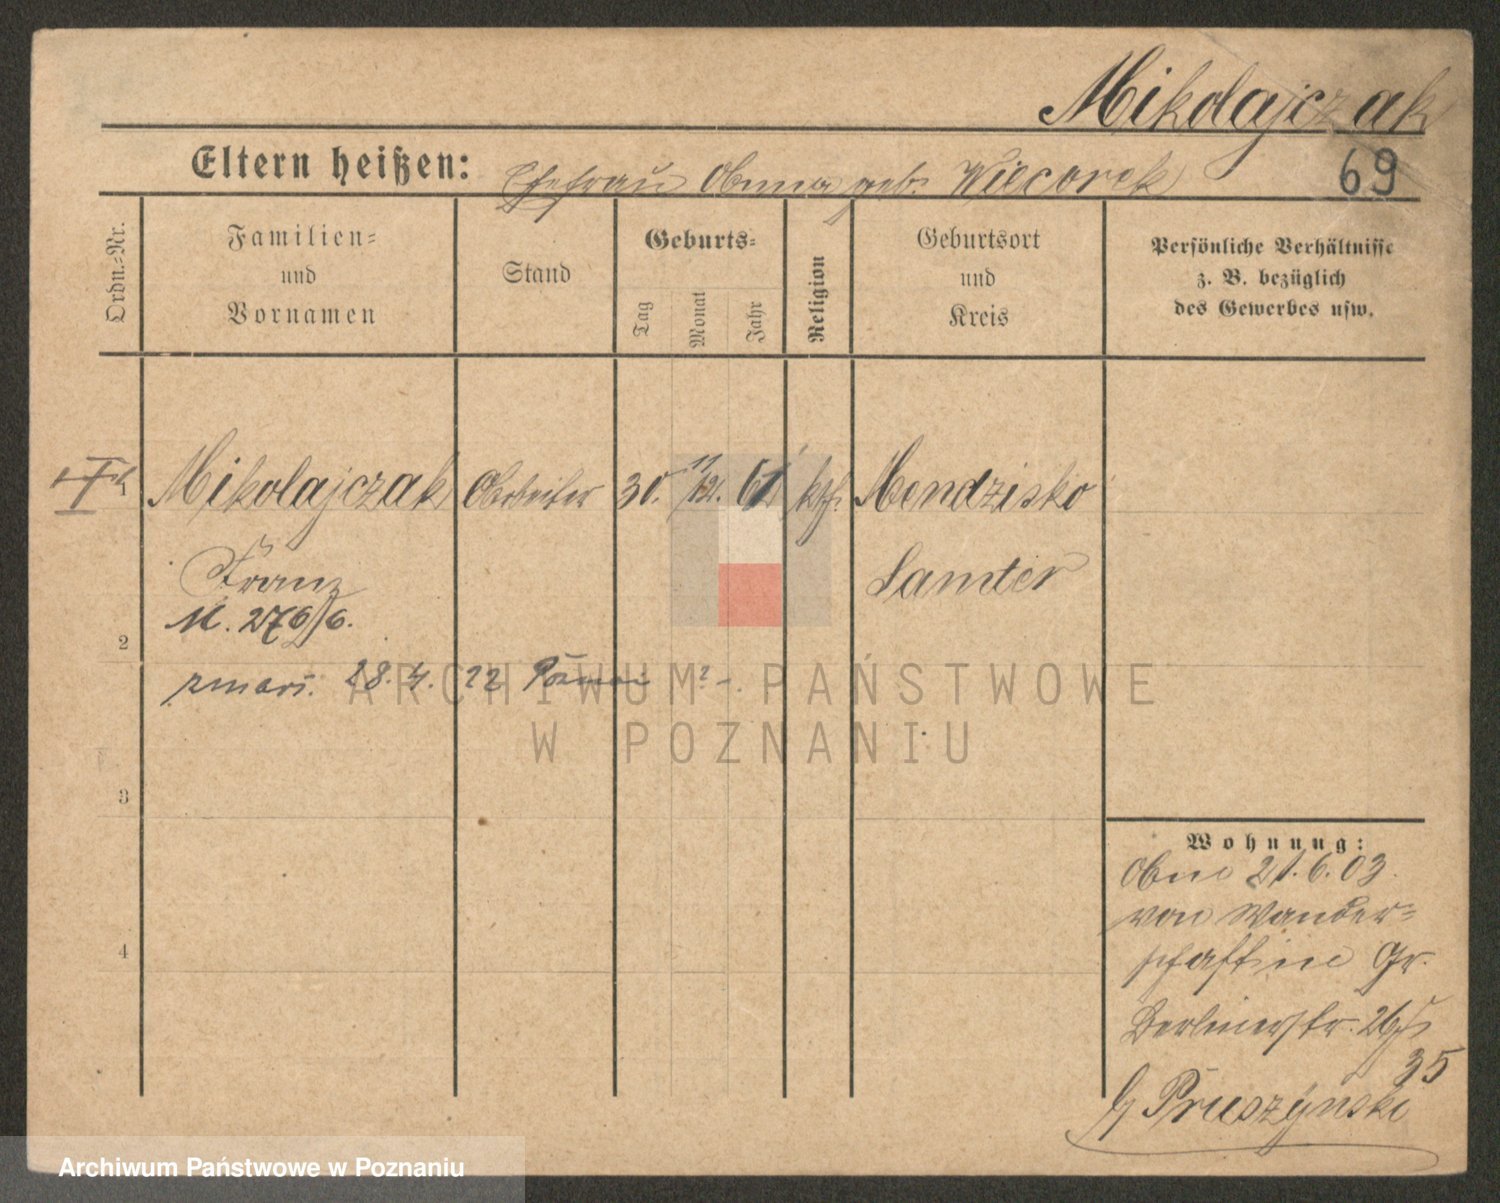 Mikolajczak
Eltern heißen: Ehefrau Anna geb. Wiecorek
69
Ordn.-Nr.
Familien-
und
Vornamen
Stand
Geburts-
Tag
Monat
Jahr
Religion
Geburtsort
und
Kreis
Persönliche Verhältnisse
z. B. bezüglich
des Gewerbes usw.
1 Mikolajczak Arbeiter 30. 61 kth. Mendzisko
Franz Samter
M. 276/6.
2
zmarł. 28.4.22 Poznań ? -
3
4
Wohnung:
Ahne 21.6.03.
von Wander-
schaft in Gr.
Berlinerstr.
35
Pruszynski
ARCHIWUM PAŃSTWOWE
W POZNANIU
Archiwum Państwowe w Poznaniu